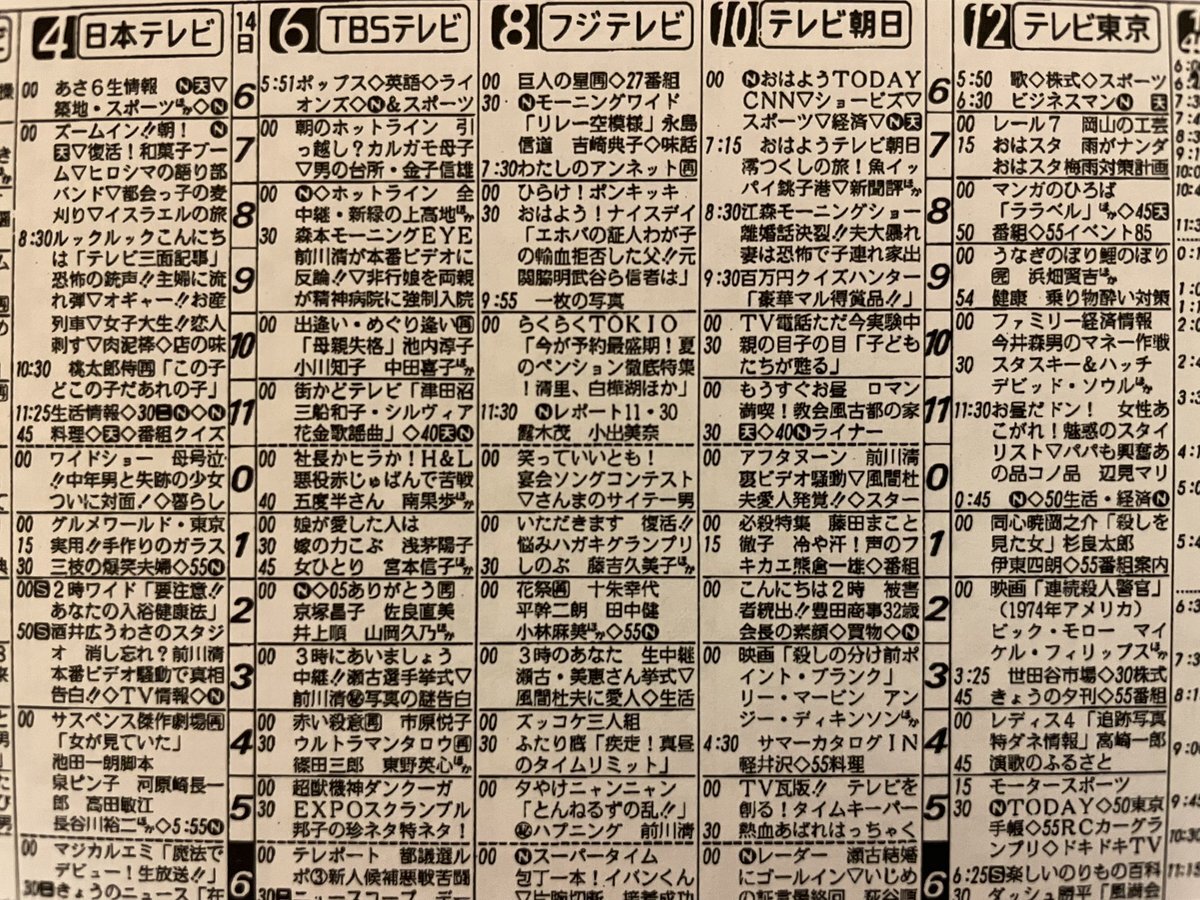 4 日本テレビ
00 あさ6生情報 Ⓝ天▽
築地・スポーツほか◇Ⓝ
00 ズームイン!!朝! Ⓝ
天▽復活!和菓子ブー
ム▽ヒロシマの語り部
バンド▽都会っ子の麦
刈り▽イスラエルの旅
8:30ルックルックこんにち
は「テレビ三面記事」
恐怖の銃声!!主婦に流
れ弾▽オギャー!!お産
列車▽女子大生!!恋人
刺す▽肉泥棒◇店の味
10:30 桃太郎侍再「この子
どこの子だあれの子」
11:25生活情報◇30Ⓝ◇Ⓝ
45 料理◇天◇番組クイズ
00 ワイドショー 母号泣
!!中年男と失踪の少女
ついに対面!◇暮らし
00 グルメワールド・東京
15 実用!!手作りのガラス
30 三枝の爆笑夫婦◇55Ⓝ
00Ⓢ2時ワイド「要注意!!
あなたの入浴健康法」
50Ⓢ酒井広うわさのスタジ
オ 消し忘れ?前川清
本番ビデオ騒動で真相
告白!!◇TV情報◇Ⓝ
00 サスペンス傑作劇場再
「女が見ていた」
池田一朗脚本
泉ピン子 河原崎長一
郎 高田敏江
長谷川裕二ほか◇5:55Ⓝ
00 マジカルエミ「魔法で
デビュー!生放送!!」
30 きょうのニュース「在
14日
6
7
8
9
10
11
0
1
2
3
4
5
6
6 TBSテレビ
5:51ポップス◇英語◇ライ
オンズ◇Ⓝ&スポーツ
00 朝のホットライン 引
っ越し?カルガモ母子
▽男の台所・金子信雄
00 Ⓝ◇ホットライン 全
中継・新緑の上高地ほか
30 森本モーニングEYE
前川清が本番ビデオに
反論!!▽非行娘を両親
が精神病院に強制入院
00 出逢い・めぐり逢い再
「母親失格」池内淳子
小川知子 中田喜子ほか
00 街かどテレビ「津田沼
三船和子・シルヴィア
花金歌謡曲」◇40天Ⓝ
00 社長かヒラか!H&L
悪役赤じゅばんで苦戦
40 五度半さん 南果歩ほか
00 娘が愛した人は
30 嫁の力こぶ 浅茅陽子
45 女ひとり 宮本信子ほか
00 Ⓝ◇05ありがとう再
京塚昌子 佐良直美
井上順 山岡久乃ほか
00 3時にあいましょう
中継!!瀬古選手挙式▽
前川清㊙写真の謎告白
00 赤い殺意再 市原悦子
30 ウルトラマンタロウ再
篠田三郎 東野英心ほか
00 超獣機神ダンクーガ
30 EXPOスクランブル
邦子の珍ネタ特ネタ!
00 テレポート 都議選ル
ポ③新人候補悪戦苦闘
30 ニュースコープ デー
8 フジテレビ
00 巨人の星再◇27番組
30 Ⓝモーニングワイド
「リレー空模様」永島
信道 吉崎典子◇味話
7:30わたしのアンネット再
00 ひらけ!ポンキッキ
30 おはよう!ナイスデイ
「エホバの証人わが子
の輸血拒否した父!!元
関脇明武谷ら信者は」
9:55 一枚の写真
00 らくらくTOKIO
「今が予約最盛期!夏
のペンション徹底特集
!清里、白樺湖ほか」
11:30 Ⓝレポート11・30
露木茂 小出美奈
00 笑っていいとも!
宴会ソングコンテスト
▽さんまのサイテー男
00 いただきます 復活!!
悩みハガキグランプリ
30 しのぶ 藤吉久美子ほか
00 花祭再 十朱幸代
平幹二朗 田中健
小林麻美ほか◇55Ⓝ
00 3時のあなた 生中継
瀬古・美恵さん挙式▽
風間杜夫に愛人◇生活
00 ズッコケ三人組
30 ふたり鷹「疾走!真昼
のタイムリミット」
00 夕やけニャンニャン
「とんねるずの乱!!」
㊙ハプニング 前川清
00 Ⓝスーパータイム
包丁一本!イバンくん
10 テレビ朝日
00 ⓃおはようTODAY
CNN▽ショービズ▽
スポーツ▽経済▽Ⓝ天
7:15 おはようテレビ朝日
澪つくしの旅!魚イッ
パイ銚子港▽新聞評ほか
8:30江森モーニングショー
離婚話決裂!!夫大暴れ
妻は恐怖で子連れ家出
9:30百万円クイズハンター
「豪華マル得賞品!!」
00 TV電話ただ今実験中
30 親の目子の目「子ども
たちが甦る」
00 もうすぐお昼 ロマン
満喫!教会風古都の家
30 天◇40Ⓝライナー
00 アフタヌーン 前川清
裏ビデオ騒動▽風間杜
夫愛人発覚!!◇スター
00 必殺特集 藤田まこと
15 徹子 冷や汗!声のフ
キカエ熊倉一雄◇番組
00 こんにちは2時 被害
者続出!!豊田商事32歳
会長の素顔◇買物◇Ⓝ
00 映画「殺しの分け前ポ
イント・ブランク」
リー・マービン アン
ジー・ディキンソンほか
4:30 サマーカタログIN
軽井沢◇55料理
00 TV瓦版!! テレビを
創る!タイムキーパー
30 熱血あばれはっちゃく
00 Ⓝレーダー 瀬古結婚
にゴールイン▽いじめ
6
7
8
9
10
11
0
1
2
3
4
5
6
12 テレビ東京
5:50 歌◇株式◇スポーツ
6:30 ビジネスマンⓃ 天
00 レール7 岡山の工芸
15 おはスタ 雨がナンダ
おはスタ梅雨対策計画
00 マンガのひろば
「ララベル」ほか◇45天
50 番組◇55イベント85
00 うなぎのぼり鯉のぼり
再 浜畑賢吉ほか
54 健康 乗り物酔い対策
00 ファミリー経済情報
今井森男のマネー作戦
30 スタスキー&ハッチ
デビッド・ソウルほか
11:30お昼だドン! 女性あ
こがれ!魅惑のスタイ
リスト▽パパも興奮あ
の品コノ品 辺見マリ
0:45 Ⓝ◇50生活・経済Ⓝ
00 同心暁蘭之介「殺しを
見た女」杉良太郎
伊東四朗◇55番組案内
00 映画「連続殺人警官」
(1974年アメリカ)
ビック・モロー マイ
ケル・フィリップスほか
3:25 世田谷市場◇30株式
45 きょうの夕刊◇55番組
00 レディス4「追跡写真
特ダネ情報」高崎一郎
45 演歌のふるさと
15 モータースポーツ
30 ⓃTODAY◇50東京
手帳◇55RCカーグラ
ンプリ◇ドキドキTV
6:25Ⓢ楽しいのりもの百科
30 ダッシュ勝平「風満会